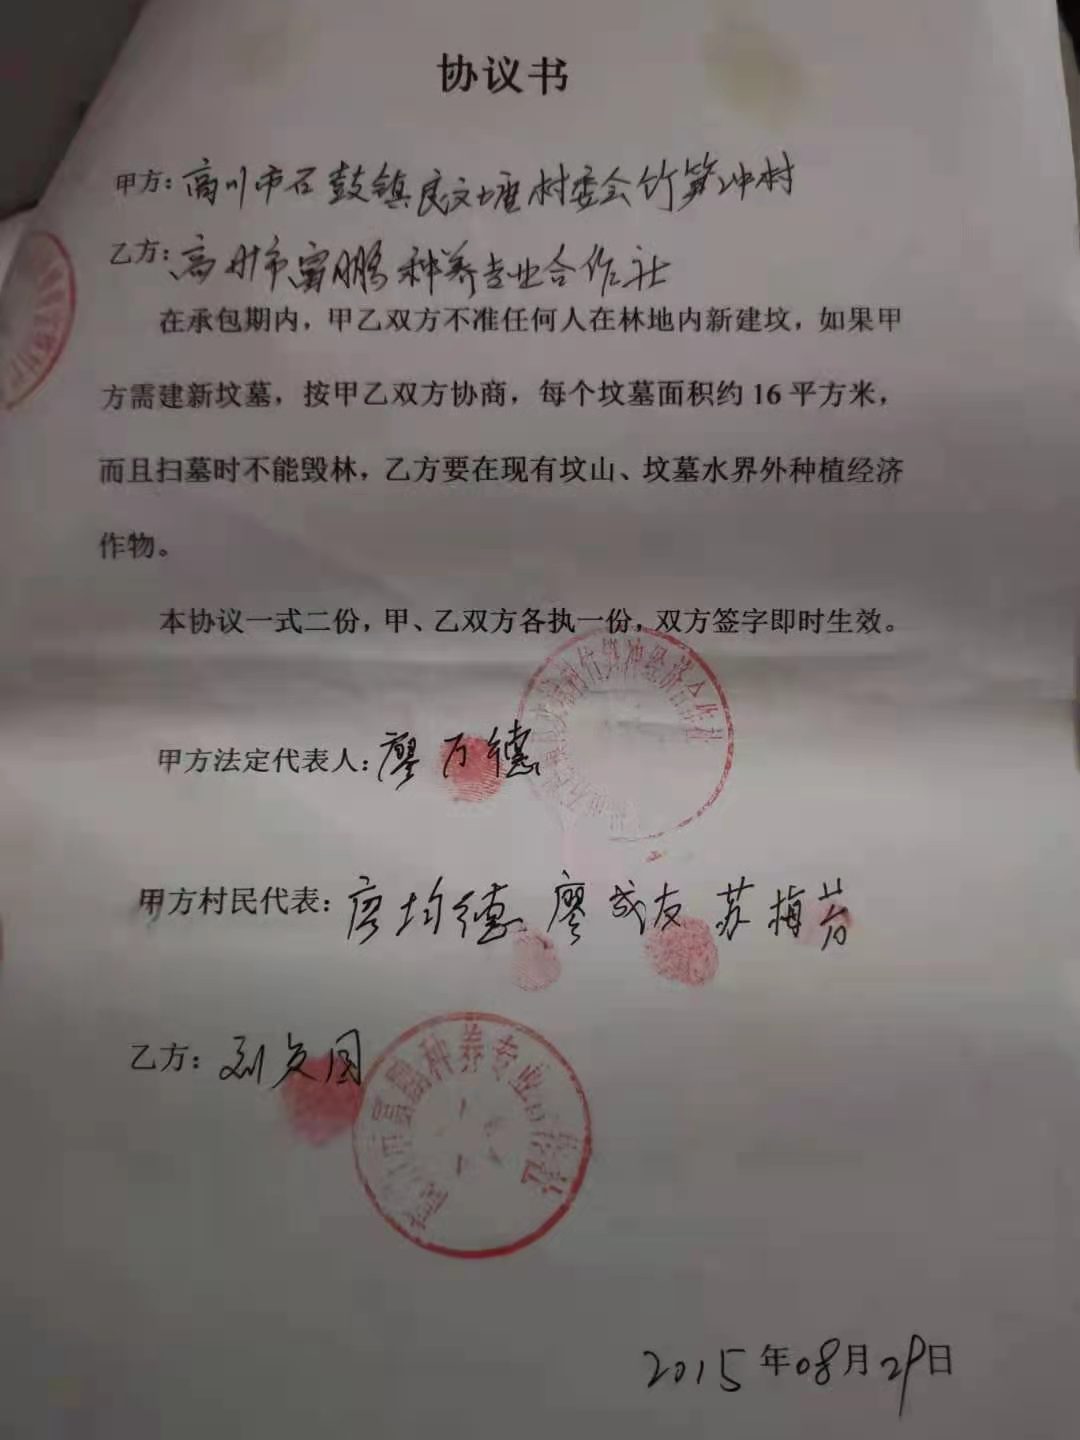 协议书
甲方：高州市石鼓镇民文塘村委会竹笋冲村
乙方：高州市富鹏种养专业合作社
在承包期内，甲乙双方不准任何人在林地内新建坟，如果甲
方需建新坟墓，按甲乙双方协商，每个坟墓面积约16平方米，
而且扫墓时不能毁林，乙方要在现有坟山、坟墓水界外种植经济
作物。
本协议一式二份，甲、乙双方各执一份，双方签字即时生效。
竹笋冲经济合作社
甲方法定代表人：廖万德
甲方村民代表：廖均德 廖成友 苏梅芳
乙方：
富鹏种养专业合作社
2015年08月29日